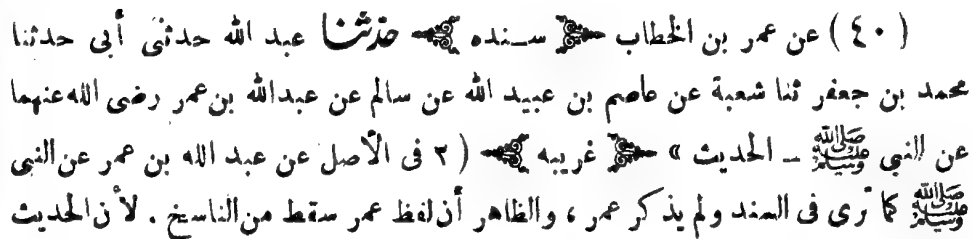 ( ٤٠ ) عن عمر بن الخطاب سنده حدثنا عبد الله حدثنى أبى حدثنا
محمد بن جعفر ثنا شعبة عن عاصم بن عبيد الله عن سالم عن عبدالله بن عمر رضى الله عنهما
عن النبى ﷺ ــ الحديث » غريبه ( ٢ فى الأصل عن عبد الله بن عمر عن النبى
ﷺ كما ترى فى السند ولم يذكر عمر ، والظاهر أن لفظ عمر سقط من الناسخ . لأن الحديث